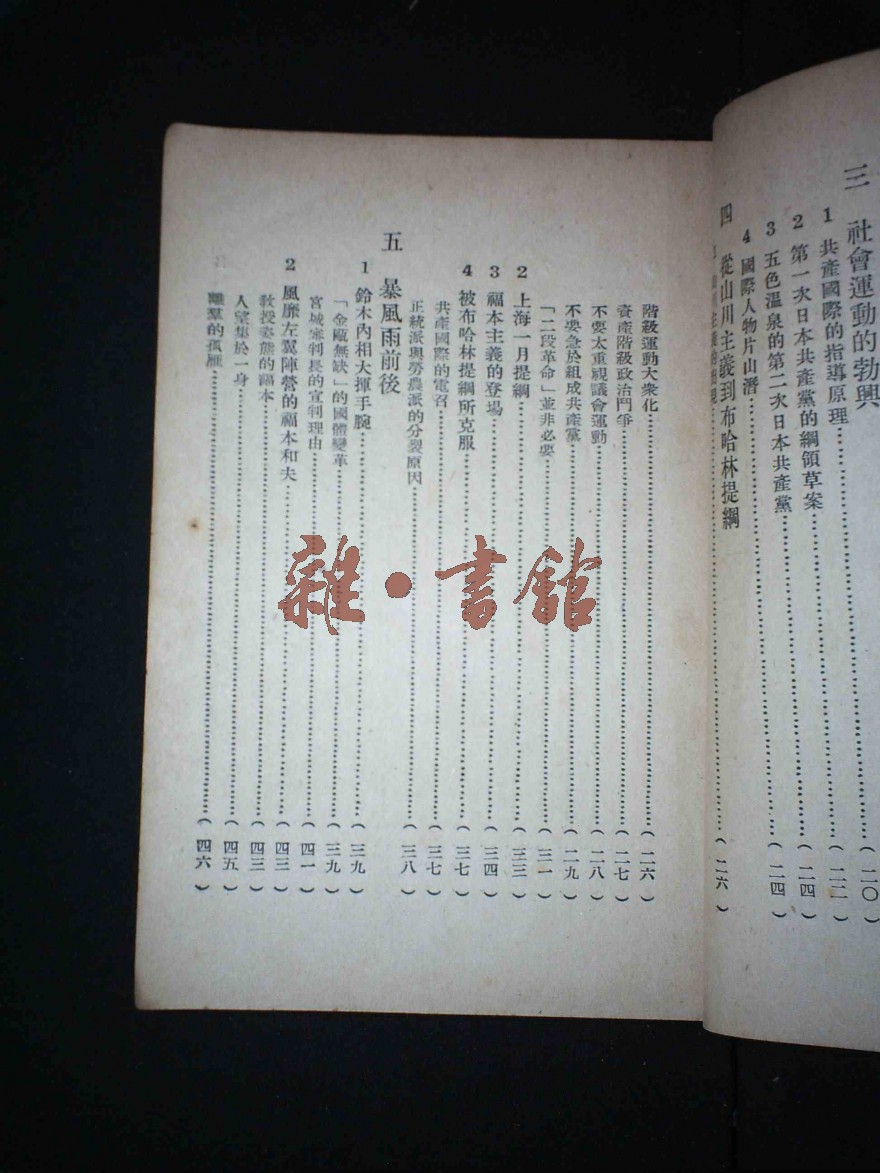 三　社會運動的勃興
1　共產國際的指導原理………(二〇)
2　第一次日本共產黨的綱領草案………(二二)
3　五色溫泉的第二次日本共產黨………(二四)
4　國際人物片山潛………(二四)
四　從山川主義到布哈林提綱
………(二六)
階級運動大衆化………(二六)
資產階級政治鬥爭………(二七)
不要太重視議會運動………(二八)
不要急於組成共產黨………(二九)
「二段革命」並非必要………(三一)
2　上海一月提綱………(三三)
3　福本主義的登場………(三四)
4　被布哈林提綱所克服………(三七)
共產國際的電召………(三七)
正統派與勞農派的分裂原因………(三八)
五　暴風雨前後
1　鈴木內相大揮手腕………(三九)
「金甌無缺」的國體變革………(三九)
宮城審判長的宣判理由………(四一)
2　風靡左翼陣營的福本和夫………(四三)
教授姿態的福本………(四三)
人望集於一身………(四五)
離羣的孤雁………(四六)
雜・書館